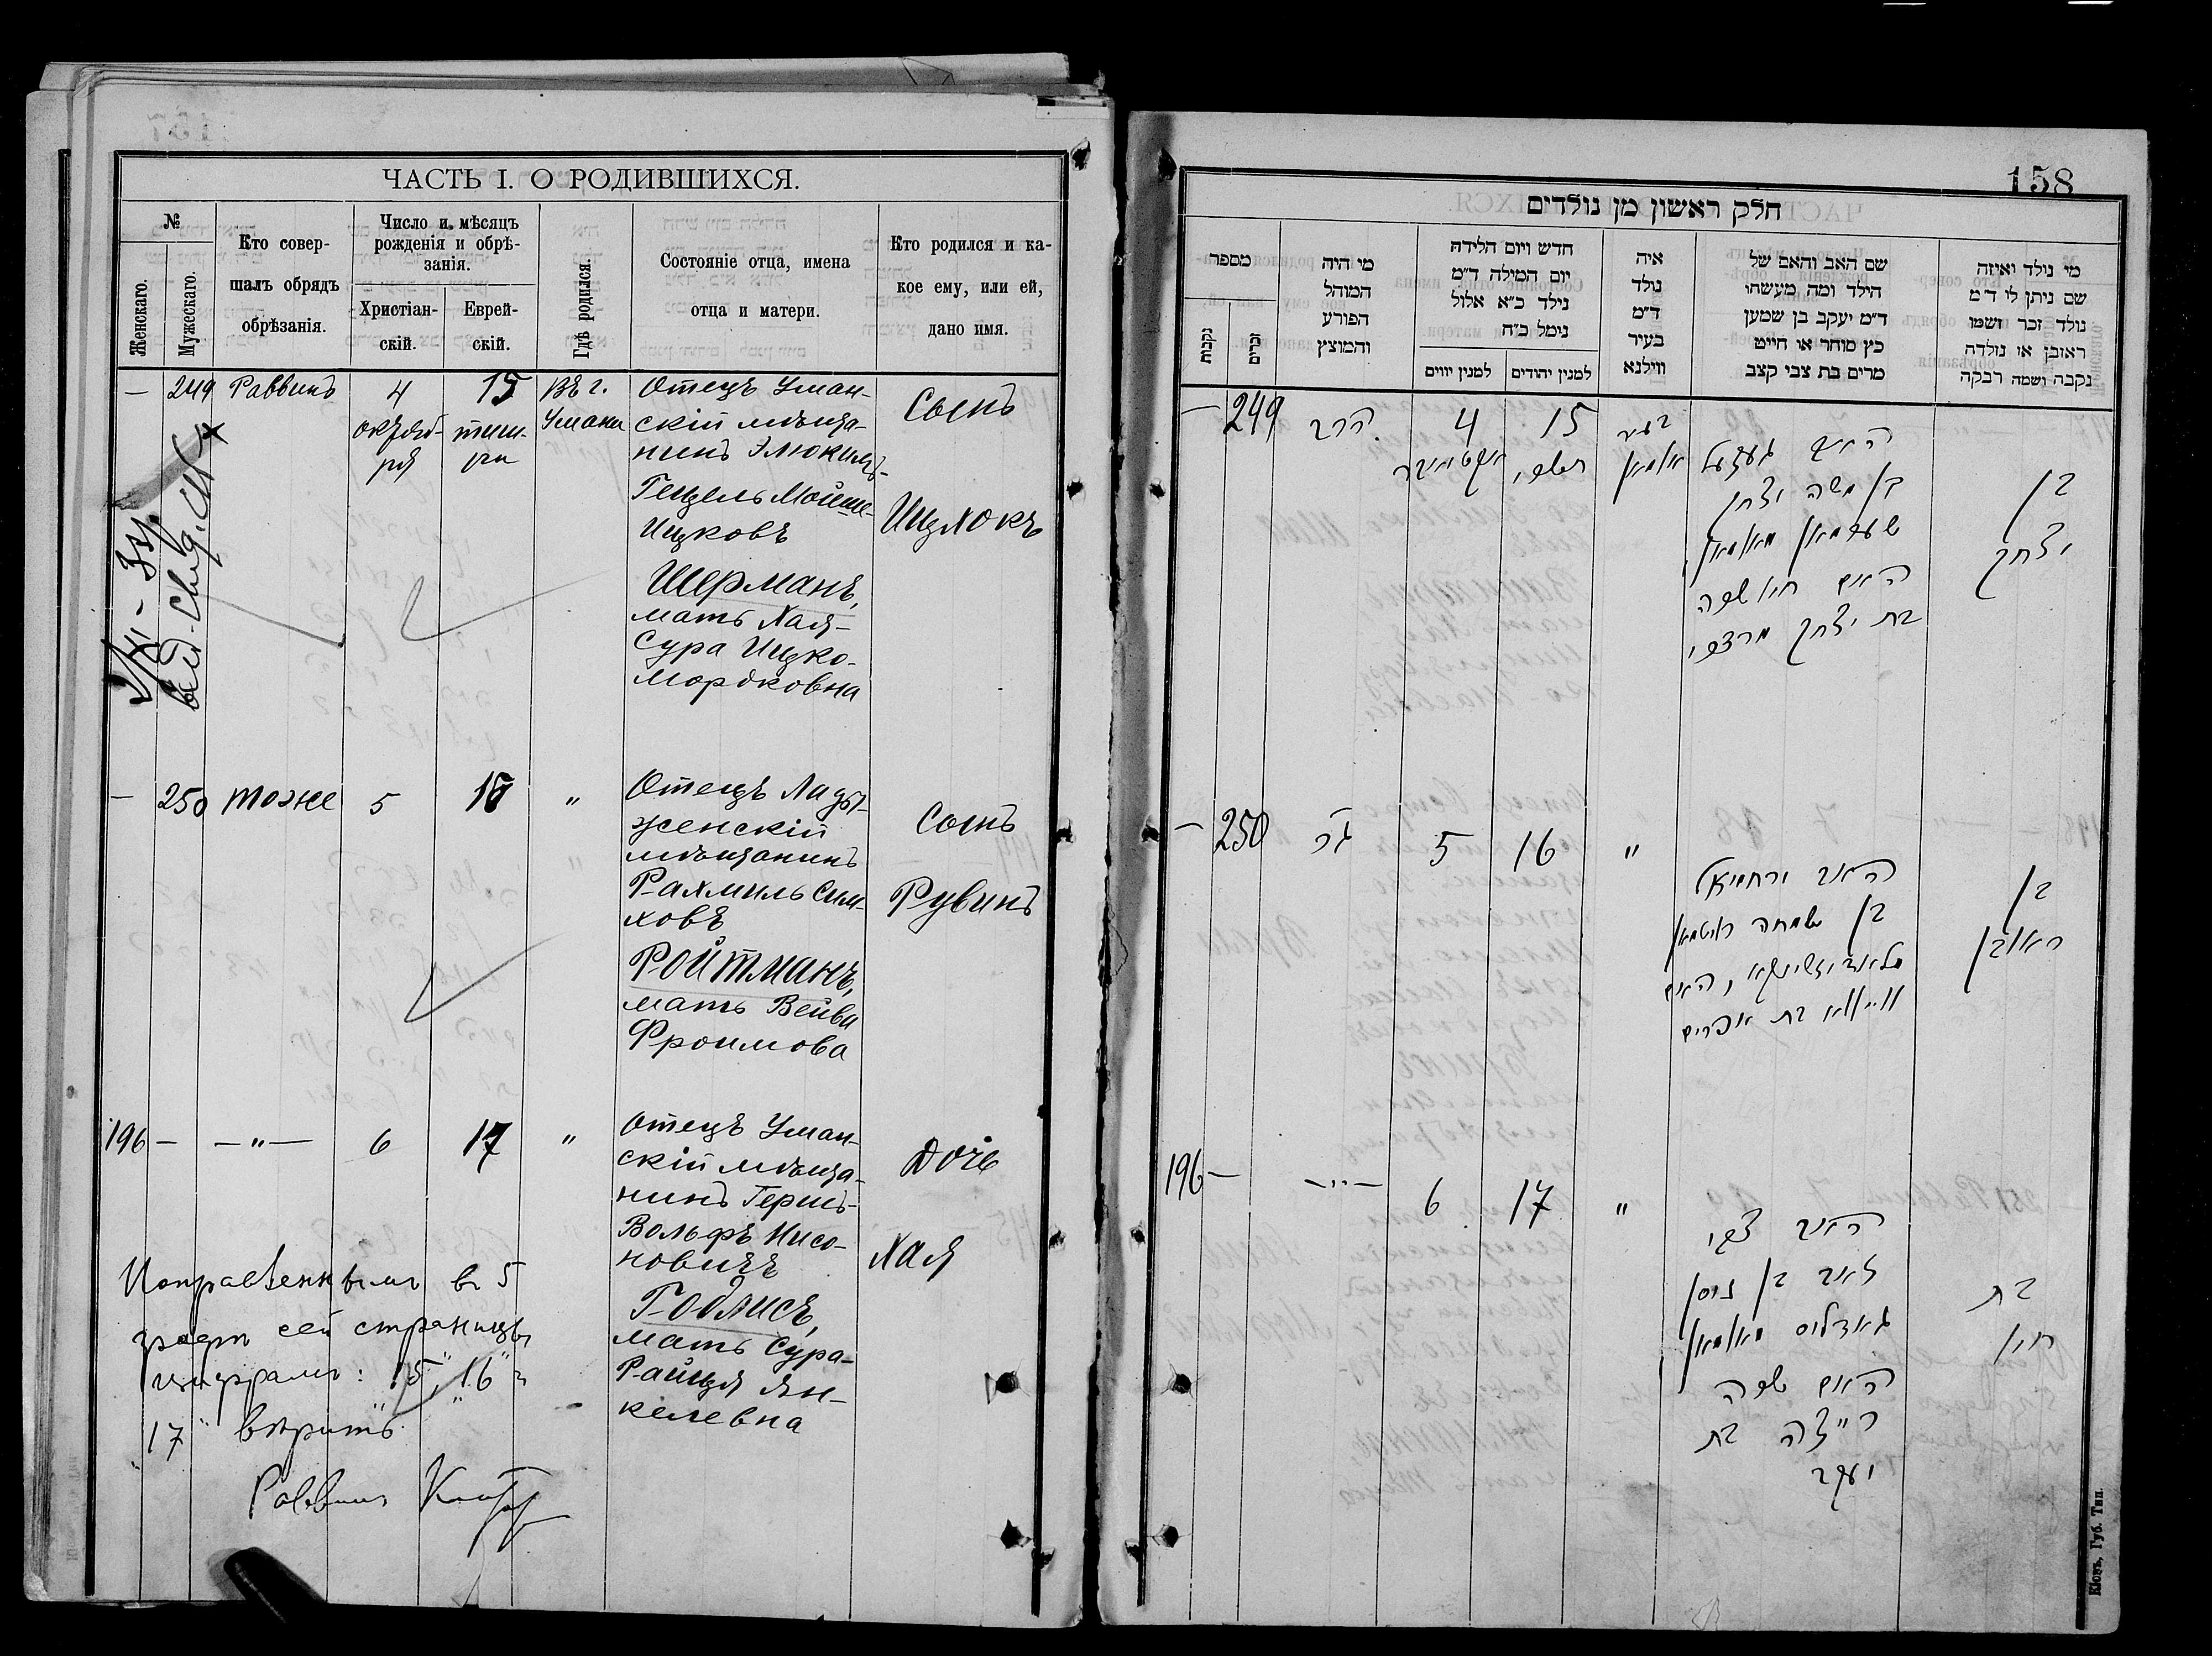 ЧАСТЬ I. О РОДИВШИХСЯ.
№
Женскаго.
Мужескаго.
Кто совер-
шалъ обрядъ
обрѣзанія.
Число и мѣсяцъ
рожденія и обрѣ-
занія.
Христіан-
скій.
Еврей-
скій.
Гдѣ родился.
Состояніе отца, имена
отца и матери.
Кто родился и ка-
кое ему, или ей,
дано имя.
— 249 Раввинъ
4
октяб-
ря
15
тиш-
ри
Въ г.
Умани
Отецъ Уман-
скій мѣща-
нинъ Элюкимъ-
Гецель Мойше-
Ицковъ
Шерманъ,
мать Хая-
Сура Ицко-
Мордковна
Сынъ
Ицхокъ
— 250 тоже 5 16 "
Отецъ Лады-
женскій
мѣщанинъ
Рахмиль Сим-
ховъ
Ройтманъ,
мать Вейва
Фроимова
Сынъ
Рувинъ
196 — — " — 6 17 "
Отецъ Уман-
скій мѣща-
нинъ Герш-
Вольфъ Нисо-
новичъ
Годлисъ,
мать Сура-
Райця Ян-
келевна
Дочь
Хая
Исправленнымъ въ 5
графѣ сей страницы
цифрамъ: "15", "16" и
"17" вѣрить
Раввинъ
158
חלק ראשון מן נולדים
מספר
נקבות
זכרים
מי היה
המוהל
הפורע
והמוצץ
חדש ויום הלידה
יום המילה ד״מ
נילד כ״א אלול
נימל כ״ח
למנין יווים
למנין יהודים
איה
נולד
ד״מ
בעיר
ווילנא
שם האב והאם של
הילד ומה מעשהו
ד״מ יעקב בן שמעון
כץ סוחר או חייט
מרים בת צבי קצב
מי נולד ואיזה
שם ניתן לו ד״מ
נולד זכר ושמו
ראובן או נולדה
נקבה ושמה רבקה
— 249
הרב
4
אקטיאבר
15
תשרי
בעיר
אומאן
האב געצעל
בן משה יצחק
שערמאן מאומאן
האם חיא שרה
בת יצחק מרדכי
בן
יצחק
— 250
5
16
"
האב ירחמיאל
בן שמחה רויטמאן
האם
בת אפרים
בן
ראובן
196 —
— " —
6
17
"
האב צבי
זאב בן ניסן
גאדליס מאומאן
האם שרה
רייצה בת
יעקב
בת
חיא
Кіевъ, Губ. Тип.